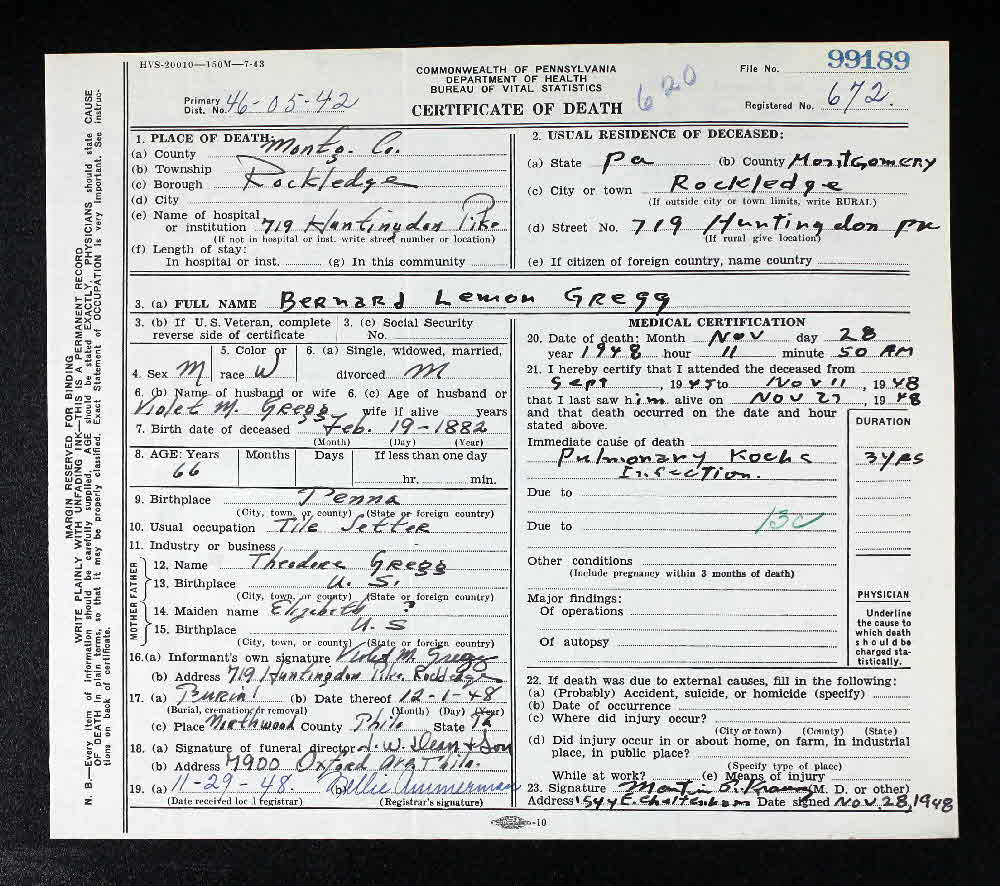 HVS-20010—150M—7-43
COMMONWEALTH OF PENNSYLVANIA
DEPARTMENT OF HEALTH
BUREAU OF VITAL STATISTICS
CERTIFICATE OF DEATH
620
File No. 99189
Primary Dist. No. 46-05-42
Registered No. 672.
MARGIN RESERVED FOR BINDING
WRITE PLAINLY WITH UNFADING INK—THIS IS A PERMANENT RECORD
N. B.—Every item of information should be carefully supplied. AGE should be stated EXACTLY. PHYSICIANS should state CAUSE
OF DEATH in plain terms, so that it may be properly classified. Exact Statement of OCCUPATION is very important. See instruc-
tions on back of certificate.
1. PLACE OF DEATH:
(a) County Montg. Co.
(b) Township
(c) Borough Rockledge
(d) City
(e) Name of hospital or institution 719 Huntingdon Pike
(If not in hospital or inst. write street number or location)
(f) Length of stay:
In hospital or inst. (g) In this community
2. USUAL RESIDENCE OF DECEASED:
(a) State Pa (b) County Montgomery
(c) City or town Rockledge
(If outside city or town limits, write RURAL.)
(d) Street No. 719 Huntingdon Pk
(If rural give location)
(e) If citizen of foreign country, name country
3. (a) FULL NAME Bernard Lemon Gregg
3. (b) If U. S. Veteran, complete reverse side of certificate
3. (c) Social Security No.
4. Sex M
5. Color or race W
6. (a) Single, widowed, married, divorced M
6. (b) Name of husband or wife Violet M. Gregg
6. (c) Age of husband or wife if alive years
7. Birth date of deceased Feb. 19-1882
(Month) (Day) (Year)
8. AGE: Years 66 Months Days If less than one day hr. min.
9. Birthplace Penna
(City, town, or county) (State or foreign country)
10. Usual occupation Tile Setter
11. Industry or business
FATHER
12. Name Theodore Gregg
13. Birthplace U. S.
(City, town, or county) (State or foreign country)
MOTHER
14. Maiden name Elizabeth ?
15. Birthplace U. S
(City, town, or county) (State or foreign country)
16. (a) Informant's own signature Violet M. Gregg
(b) Address 719 Huntingdon Pike. Rockledge
17. (a) Burial (b) Date thereof 12-1-48
(Burial, cremation or removal) (Month) (Day) (Year)
(c) Place Northwood County Phila State Pa
18. (a) Signature of funeral director W. Dean + Son
(b) Address 7900 Oxford Ave Phila.
19. (a) 11-29-48. (b) Dellie Ammerman
(Date received local registrar) (Registrar's signature)
MEDICAL CERTIFICATION
20. Date of death: Month Nov day 28
year 1948 hour 11 minute 50 AM
21. I hereby certify that I attended the deceased from
Sept, 1945 to Nov 11, 1948
that I last saw him alive on Nov 27, 1948
and that death occurred on the date and hour
stated above.
DURATION
Immediate cause of death
Pulmonary Kochs 3 yrs
Infection.
Due to
Due to 13c
Other conditions
(Include pregnancy within 3 months of death)
Major findings:
Of operations
Of autopsy
PHYSICIAN
Underline
the cause to
which death
should be
charged sta-
tistically.
22. If death was due to external causes, fill in the following:
(a) (Probably) Accident, suicide, or homicide (specify)
(b) Date of occurrence
(c) Where did injury occur?
(City or town) (County) (State)
(d) Did injury occur in or about home, on farm, in industrial
place, in public place?
(Specify type of place)
While at work? (e) Means of injury
23. Signature (M. D. or other)
Address E. Cheltenham Date signed Nov. 28, 1948
-10